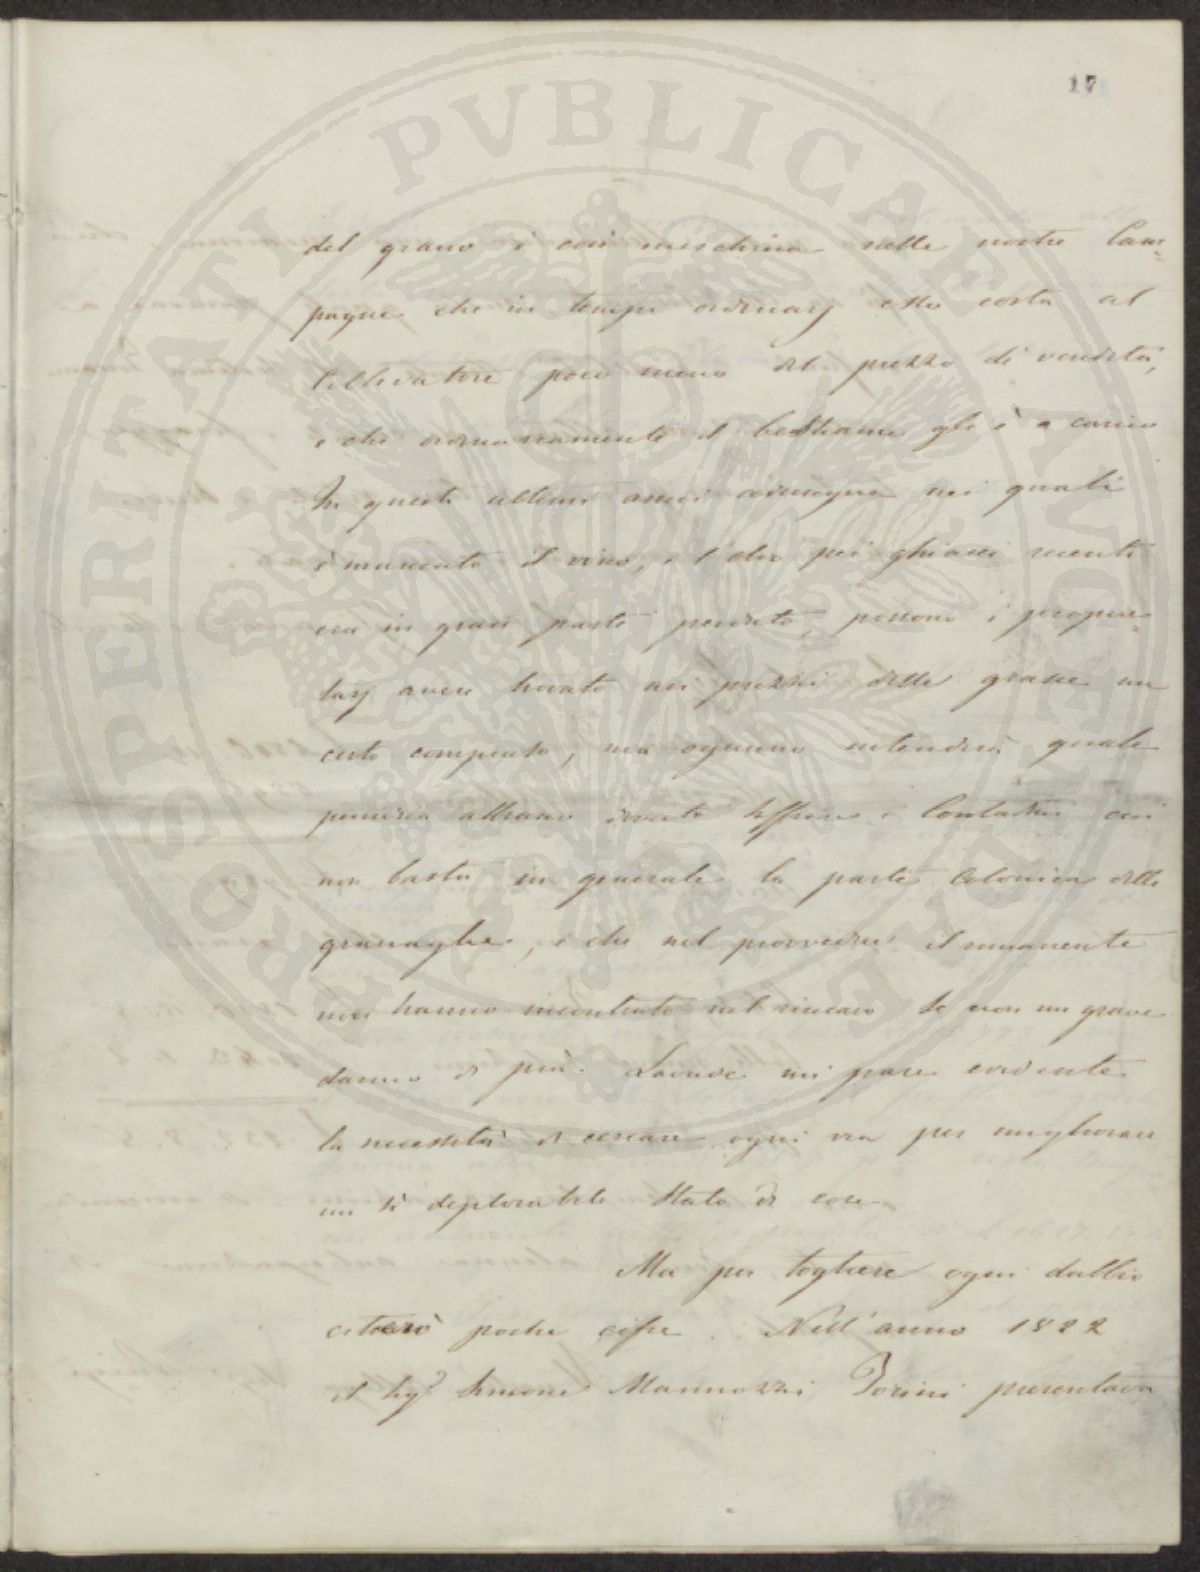 17
PROSPERITATI PVBLICAE AVGENDAE
del grano è così meschina nelle nostre Cam=
pagne che in tempi ordinarj esso costa al
Coltivatore poco meno del prezzo di vendita,
e che ordinariamente il bestiame gli è a carico
In questi ultimi anni comunque nei quali
è mancato il vino, e l'olio pei ghiacci recenti
era in gran parte perduto, possono i proprie=
tarj avere trovato nei prezzi delle grasce un
certo compenso, ma ognuno intenderà quale
penuria abbiano dovuto soffrire i Contadini cui
non basta in generale la parte Colonica delle
granaglie, e che nel provvedere il rimanente
non hanno incontrato nel rincaro se non un grave
danno di più. Laonde mi pare evidente
la necessità di cercare ogni via per migliorare
un sì deplorabile stato di cose
Ma per togliere ogni dubbio
citerò poche cifre. Nell'anno 1822
il Sig.r Simone Mannozzi Torini presentava